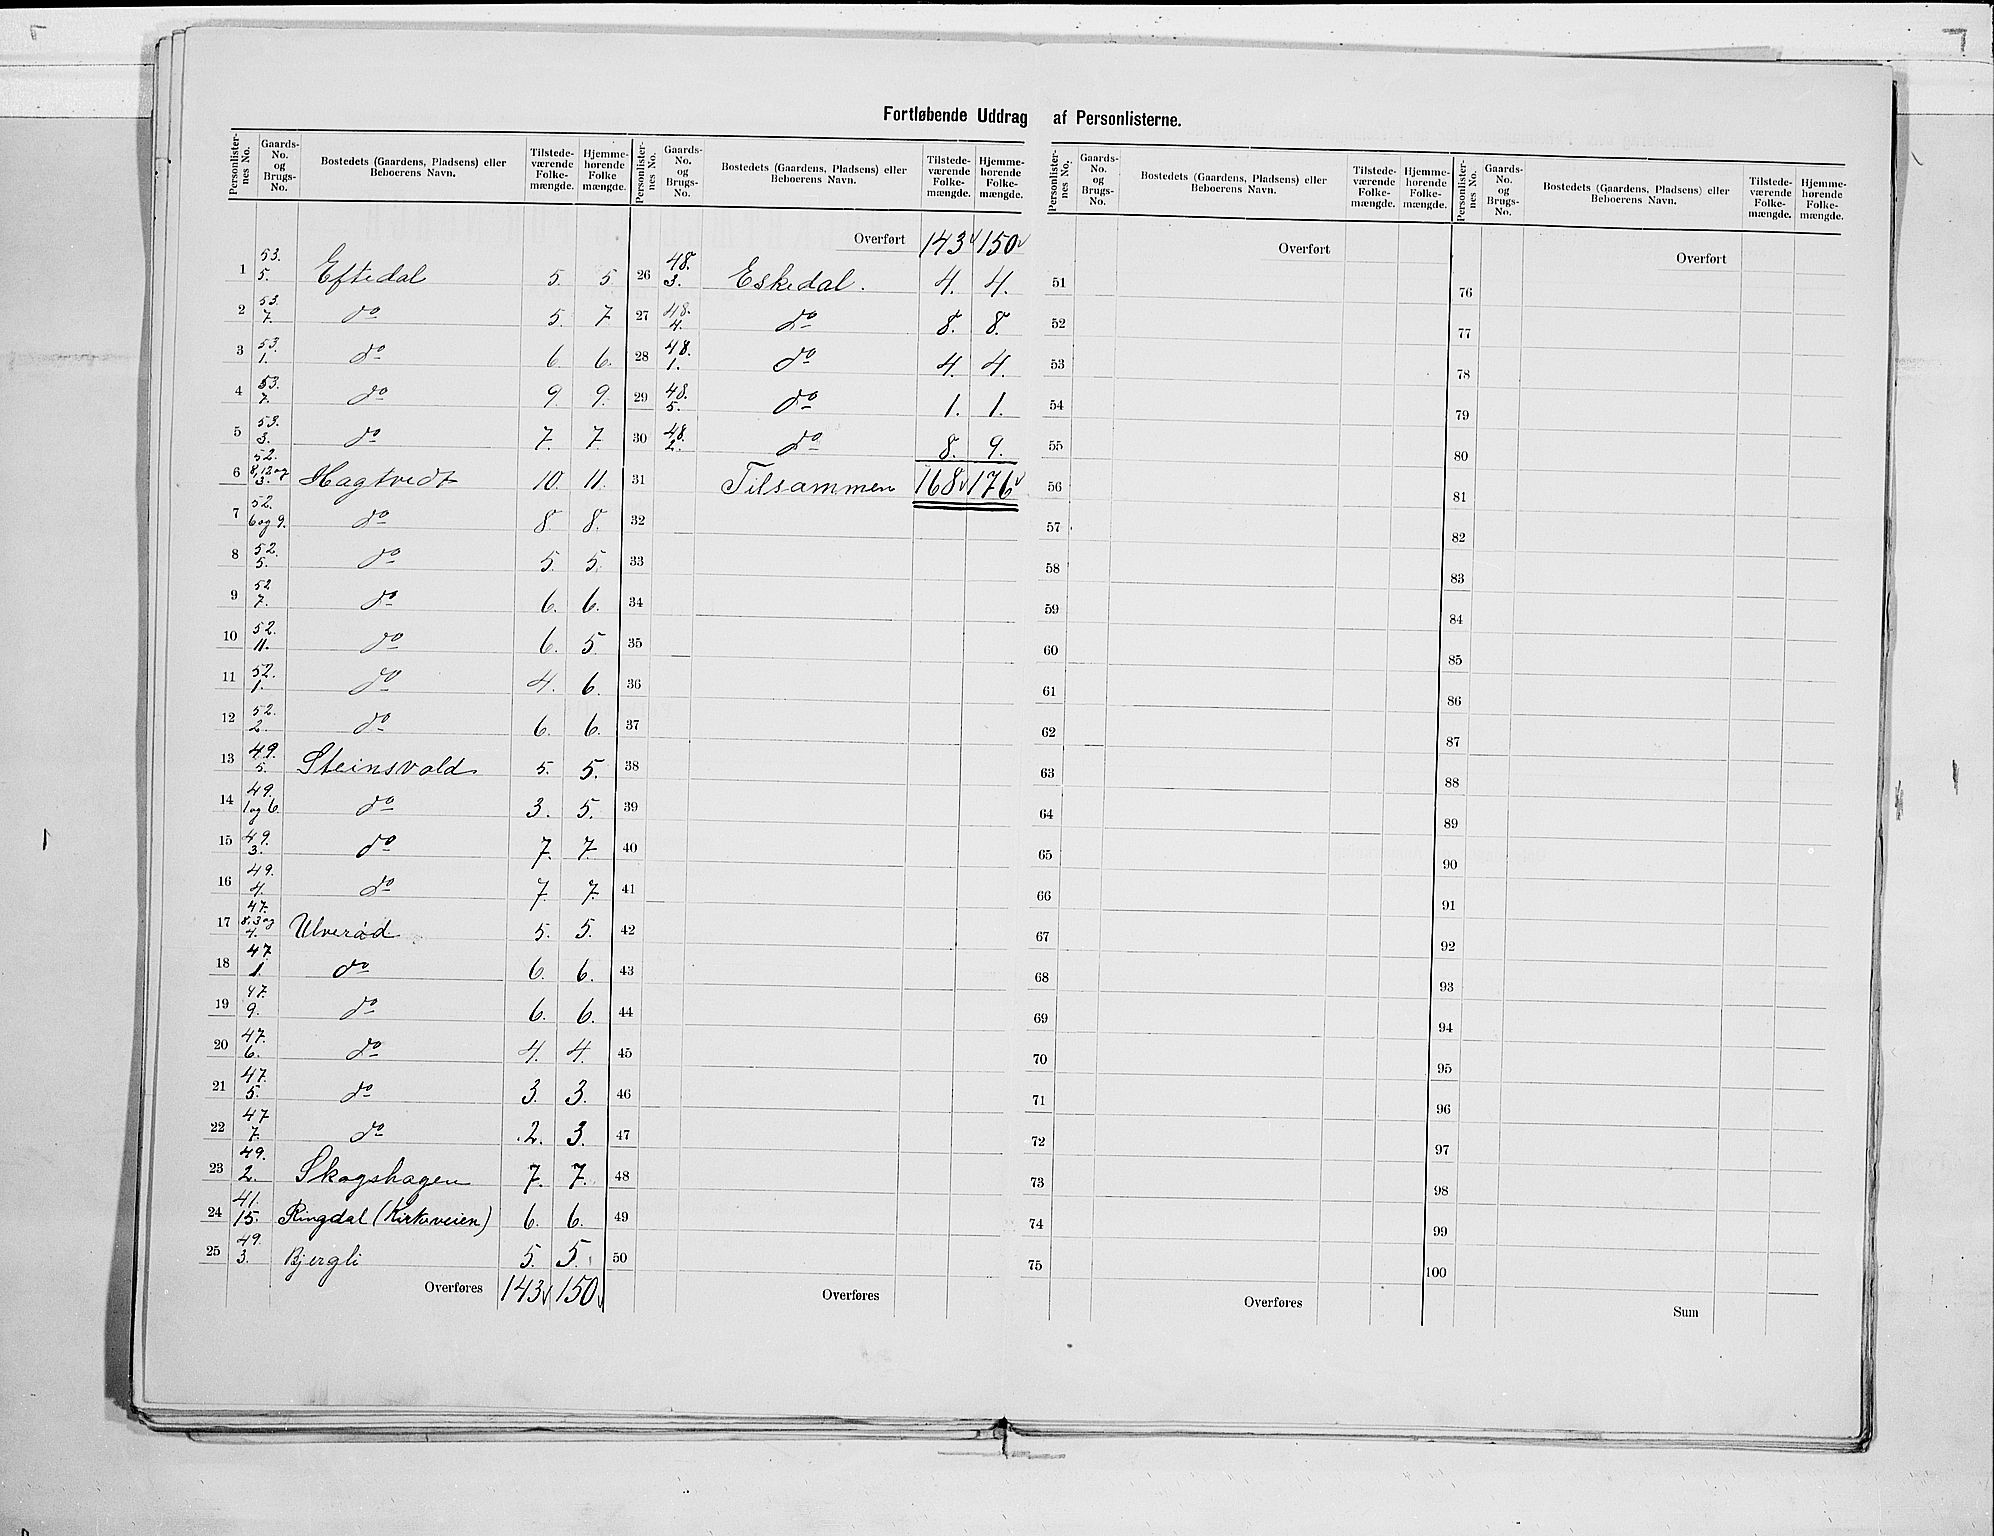 Fortløbende Uddrag af Personlisterne.
Personlister-nes No. | Gaards-No. og Brugs-No. | Bostedets (Gaardens, Pladsens) eller Beboerens Navn. | Tilstede-værende Folke-mængde. | Hjemme-hørende Folke mængde.
1 | 53. 5. | Eftedal | 5. | 5
2 | 53. 7. | do | 5. | 7
3 | 53. 1. | do | 6. | 6.
4 | 53. 7. | do | 9. | 9.
5 | 53. 3. | do | 7. | 7.
6 | 52. 8, 12 og 3. | Hagtvedt | 10. | 11.
7 | 52. 6 og 9. | do | 8. | 8.
8 | 52. 5. | do | 5. | 5.
9 | 52 7. | do | 6. | 6.
10 | 52. 11. | do | 6. | 5.
11 | 52. 1. | do | 4. | 6.
12 | 52. 2. | do | 6. | 6.
13 | 49. 5. | Steinsvold | 5. | 5.
14 | 49. 1 og 6. | do | 3. | 5.
15 | 49. 3. | do | 7. | 7.
16 | 49. 4. | do | 7. | 7.
17 | 47. 8, 3 og 4. | Ulverød | 5. | 5.
18 | 47 1. | do | 6. | 6.
19 | 47. 9. | do | 6. | 6.
20 | 47. 6. | do | 4. | 4.
21 | 47. 5. | do | 3. | 3.
22 | 47 7. | do | 2. | 3.
23 | 49. 2. | Skogshagen | 7. | 7.
24 | 41. 15. | Ringdal (Kirkeveien) | 6. | 6.
25 | 49. 3. | Bjergli | 5. | 5.
Overføres | 143 | 150
Personlister-nes No. | Gaards-No. og Brugs-No. | Bostedets (Gaardens, Pladsens) eller Beboerens Navn. | Tilstede-værende Folke-mængde. | Hjemme-hørende Folke-mængde.
Overført | 143 | 150
26 | 48. 3. | Eskedal. | 4. | 4.
27 | 48. 4. | do | 8. | 8.
28 | 48. 1. | do | 4. | 4.
29 | 48. 5. | do | 1. | 1.
30 | 48. 2. | do | 8. | 9.
31 | Tilsammen | 168 | 176
32
33
34
35
36
37
38
39
40
41
42
43
44
45
46
47
48
49
50
Overføres
Personlister-nes No. | Gaards-No. og Brugs-No. | Bostedets (Gaardens, Pladsens) eller Beboerens Navn. | Tilstede-værende Folke-mængde. | Hjemme-hørende Folke-mængde.
Overført
51
52
53
54
55
56
57
58
59
60
61
62
63
64
65
66
67
68
69
70
71
72
73
74
75
Overføres
Personlister-nes No. | Gaards-No. og Brugs-No. | Bostedets (Gaardens, Pladsens) eller Beboerens Navn. | Tilstede-værende Folke-mængde. | Hjemme-hørende Folke-mængde.
Overført
76
77
78
79
80
81
82
83
84
85
86
87
88
89
90
91
92
93
94
95
96
97
98
99
100
Sum